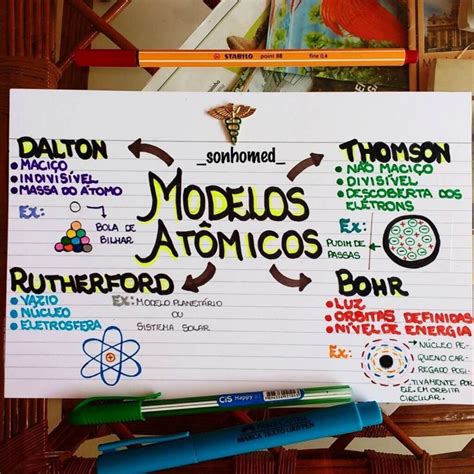 STABILO point 88 fine 0,4
_sonhomed_
MODELOS
ATÔMICOS
DALTON
MACIÇO
INDIVISÍVEL
MASSA DO ÁTOMO
Ex:
BOLA DE
BILHAR
THOMSON
NÃO MACIÇO
DIVISÍVEL
DESCOBERTA DOS
ELÉTRONS
Ex:
PUDIM DE
PASSAS
RUTHERFORD
VAZIO
NÚCLEO
ELETROSFERA
Ex: MODELO PLANETÁRIO
OU
SISTEMA SOLAR
BOHR
LUZ
ORBITAS DEFINIDAS
NÍVEL DE ENERGIA
Ex:
NÚCLEO PE-
QUENO CAR-
REGADO POSI-
TIVAMENTE POR
ELE. EM ORBITA
CIRCULAR.
CiS Happy